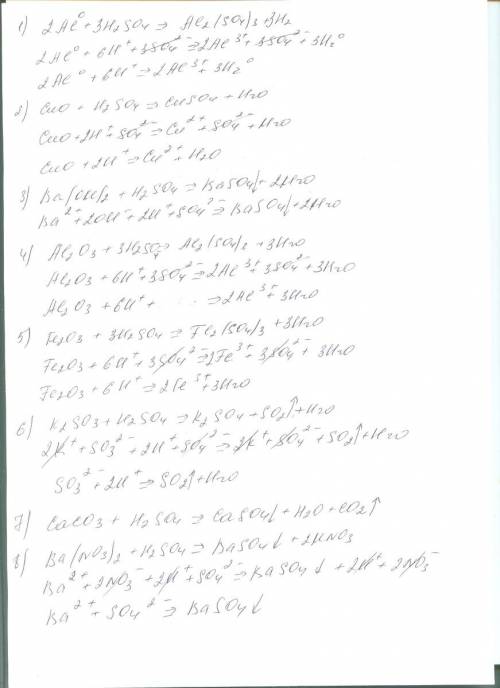 1) 2Al⁰ + 3H₂SO₄ ⇒ Al₂(SO₄)₃ + 3H₂
2Al⁰ + 6H⁺ + 3SO₄²⁻ ⇒ 2Al³⁺ + 3SO₄²⁻ + 3H₂⁰
2Al⁰ + 6H⁺ ⇒ 2Al³⁺ + 3H₂⁰
2) CuO + H₂SO₄ ⇒ CuSO₄ + H₂O
CuO + 2H⁺ + SO₄²⁻ ⇒ Cu²⁺ + SO₄²⁻ + H₂O
CuO + 2H⁺ ⇒ Cu²⁺ + H₂O
3) Ba(OH)₂ + H₂SO₄ ⇒ BaSO₄↓ + 2H₂O
Ba²⁺ + 2OH⁻ + 2H⁺ + SO₄²⁻ ⇒ BaSO₄↓ + 2H₂O
4) Al₂O₃ + 3H₂SO₄ ⇒ Al₂(SO₄)₃ + 3H₂O
Al₂O₃ + 6H⁺ + 3SO₄²⁻ ⇒ 2Al³⁺ + 3SO₄²⁻ + 3H₂O
Al₂O₃ + 6H⁺ + ⇒ 2Al³⁺ + 3H₂O
5) Fe₂O₃ + 3H₂SO₄ ⇒ Fe₂(SO₄)₃ + 3H₂O
Fe₂O₃ + 6H⁺ + 3SO₄²⁻ ⇒ 2Fe³⁺ + 3SO₄²⁻ + 3H₂O
Fe₂O₃ + 6H⁺ ⇒ 2Fe³⁺ + 3H₂O
6) K₂SO₃ + H₂SO₄ ⇒ K₂SO₄ + SO₂↑ + H₂O
2K⁺ + SO₃²⁻ + 2H⁺ + SO₄²⁻ ⇒ 2K⁺ + SO₄²⁻ + SO₂↑ + H₂O
SO₃²⁻ + 2H⁺ ⇒ SO₂↑ + H₂O
7) CaCO₃ + H₂SO₄ ⇒ CaSO₄↓ + H₂O + CO₂↑
8) Ba(NO₃)₂ + H₂SO₄ ⇒ BaSO₄↓ + 2HNO₃
Ba²⁺ + 2NO₃⁻ + 2H⁺ + SO₄²⁻ ⇒ BaSO₄↓ + 2H⁺ + 2NO₃⁻
Ba²⁺ + SO₄²⁻ ⇒ BaSO₄↓